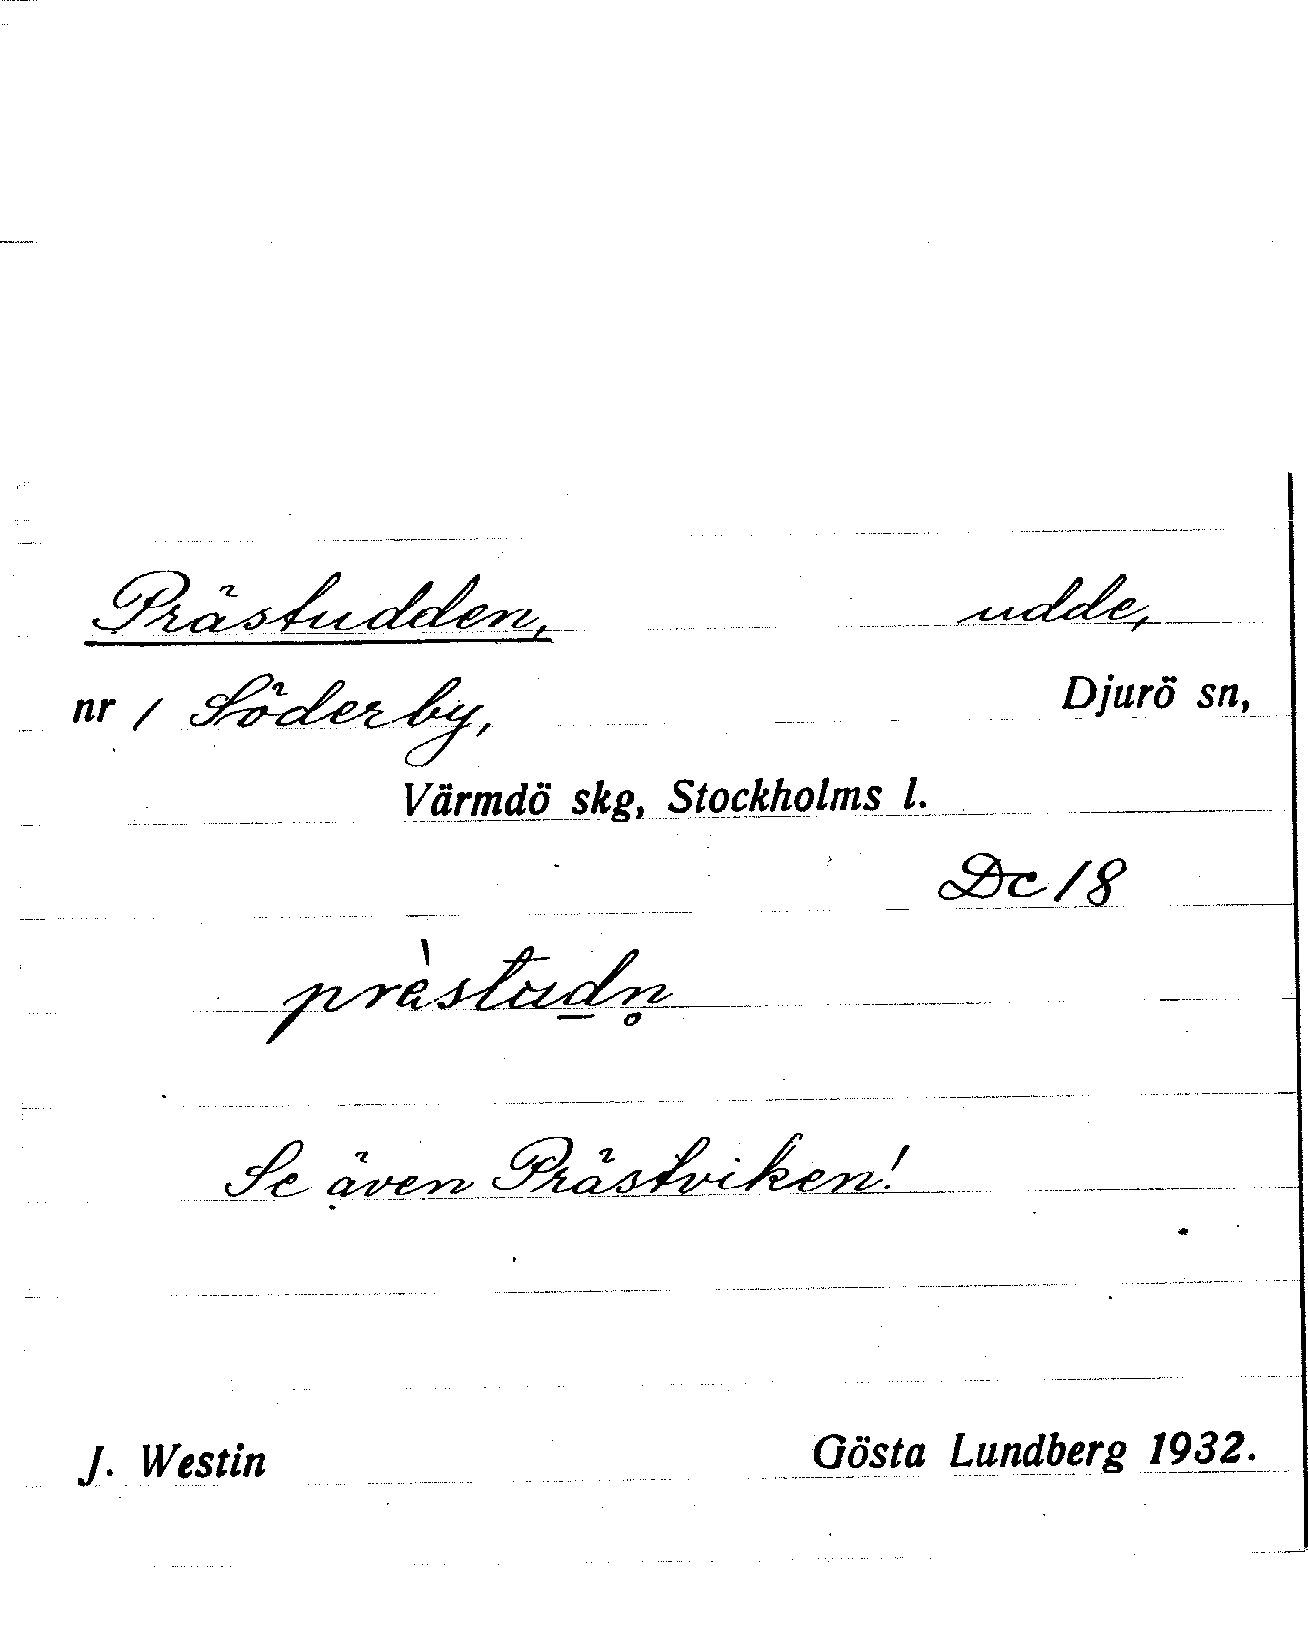 Prästudden, udde,
nr 1 Söderby, Djurö sn,
Värmdö skg, Stockholms l.
Dc 18
prèstud̲n̥
Se även Prästviken!
J. Westin Gösta Lundberg 1932.